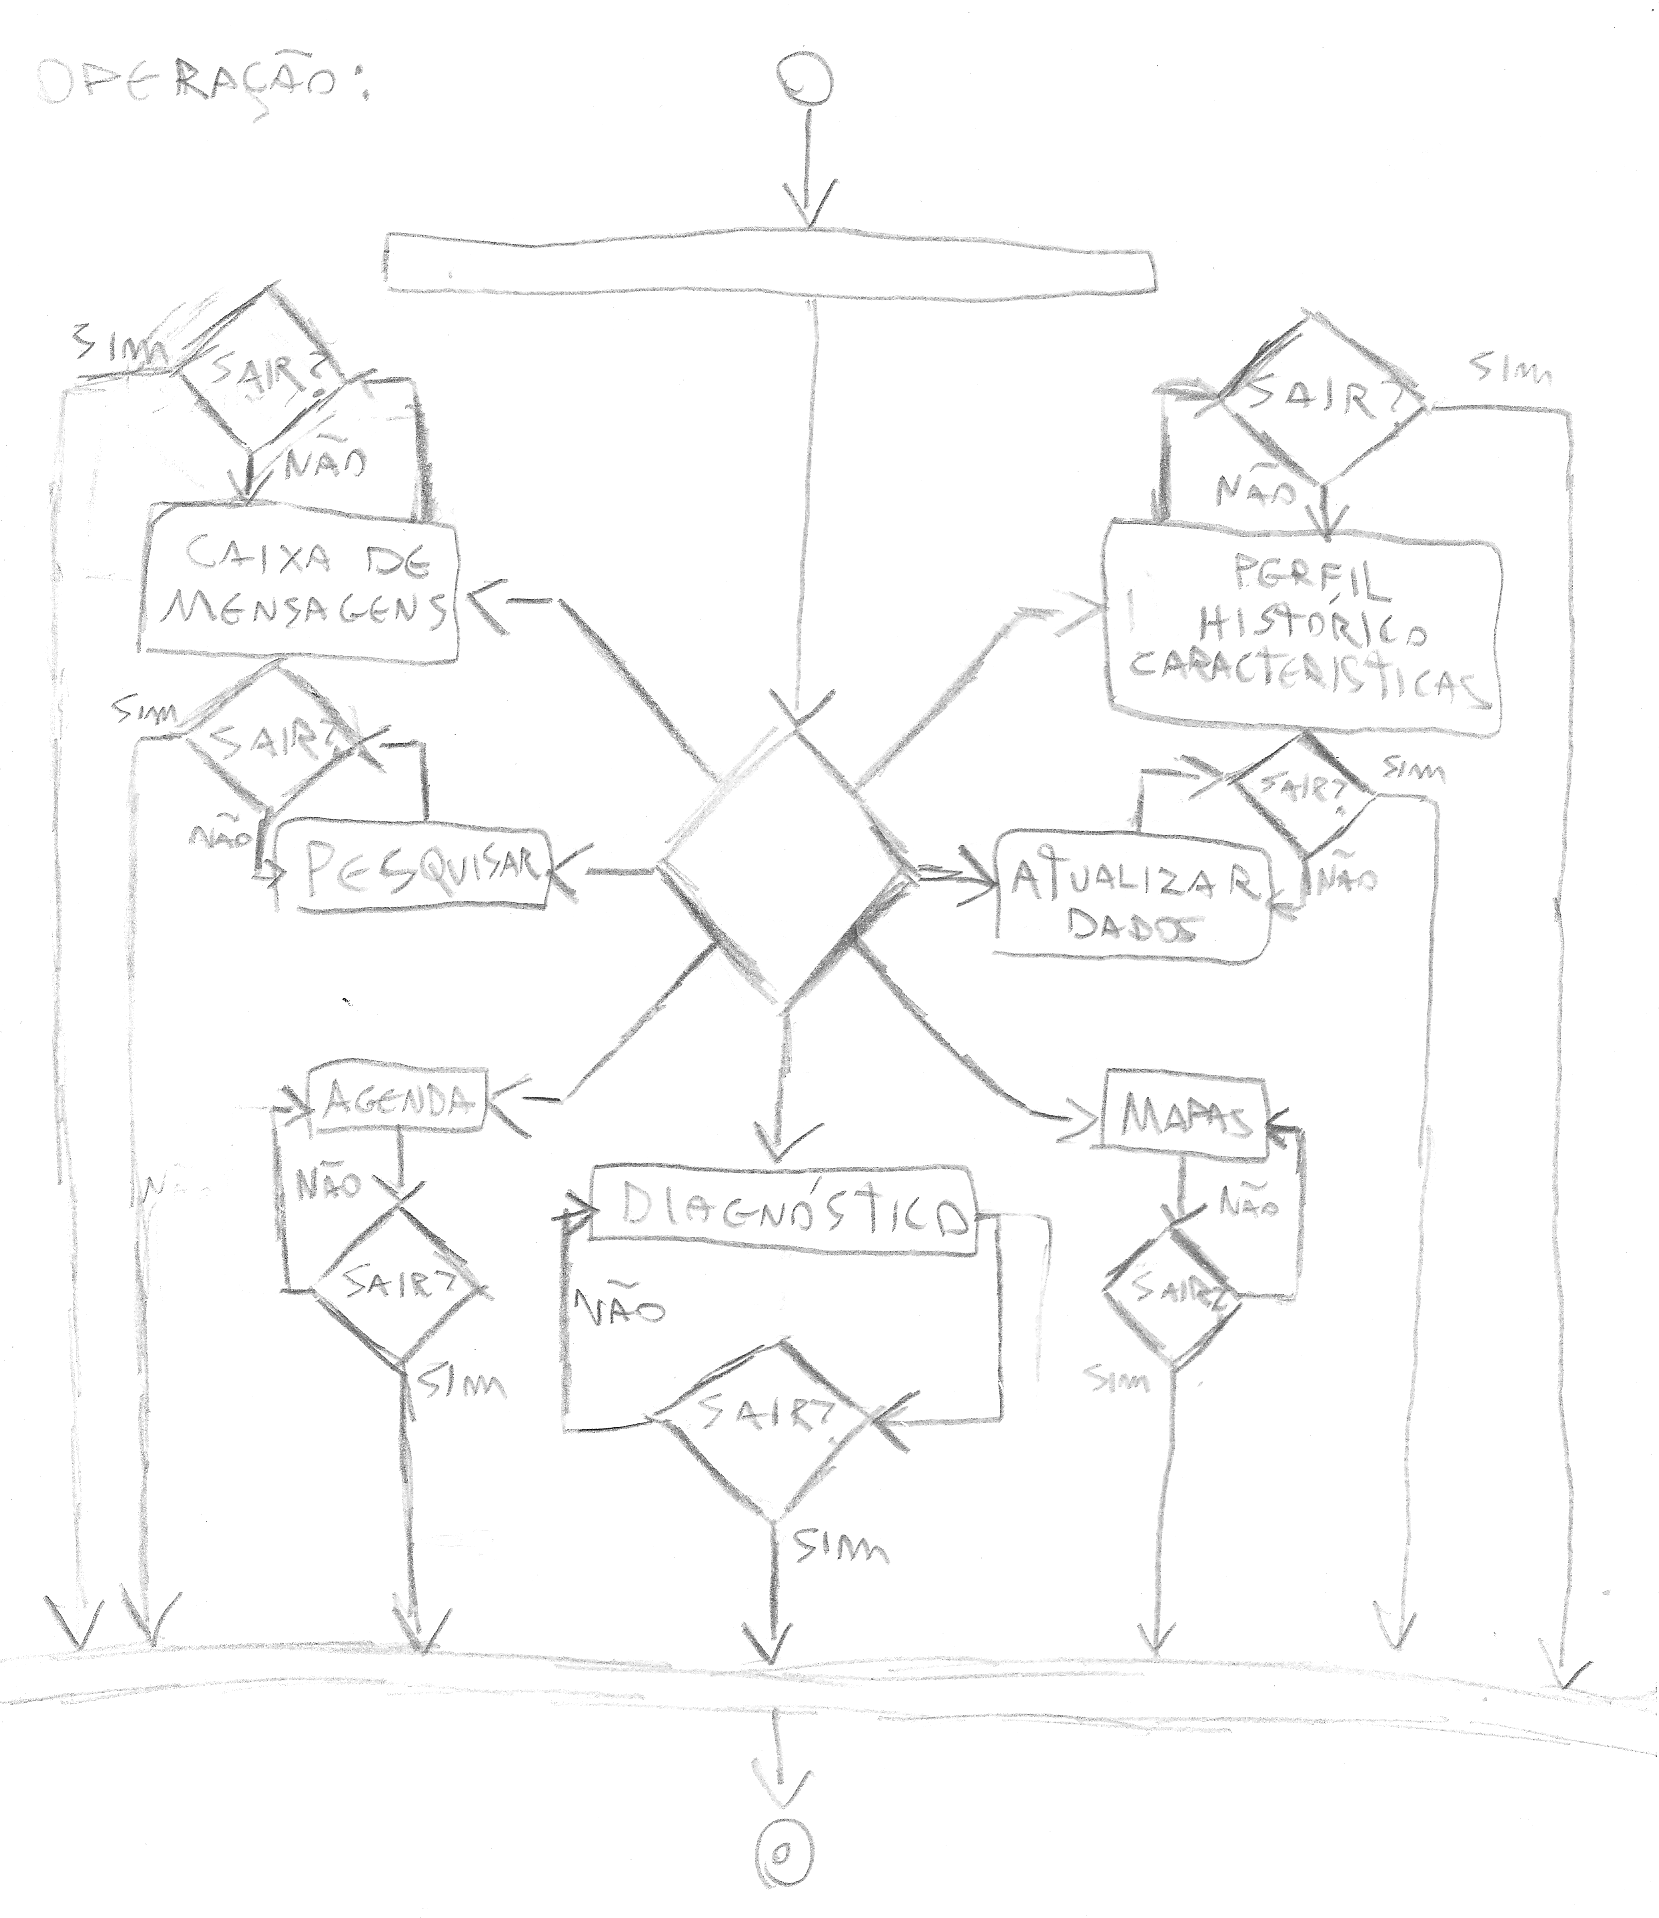 OPERAÇÃO:
SIM
SAIR?
NÃO
CAIXA DE
MENSAGENS
SIM
SAIR?
NÃO
PESQUISAR
SAIR?
SIM
NÃO
PERFÍL
HISTÓRICO
CARACTERÍSTICAS
SAIR?
SIM
NÃO
ATUALIZAR
DADOS
AGENDA
NÃO
SAIR?
SIM
DIAGNÓSTICO
NÃO
SAIR?
SIM
MAPAS
NÃO
SAIR?
SIM